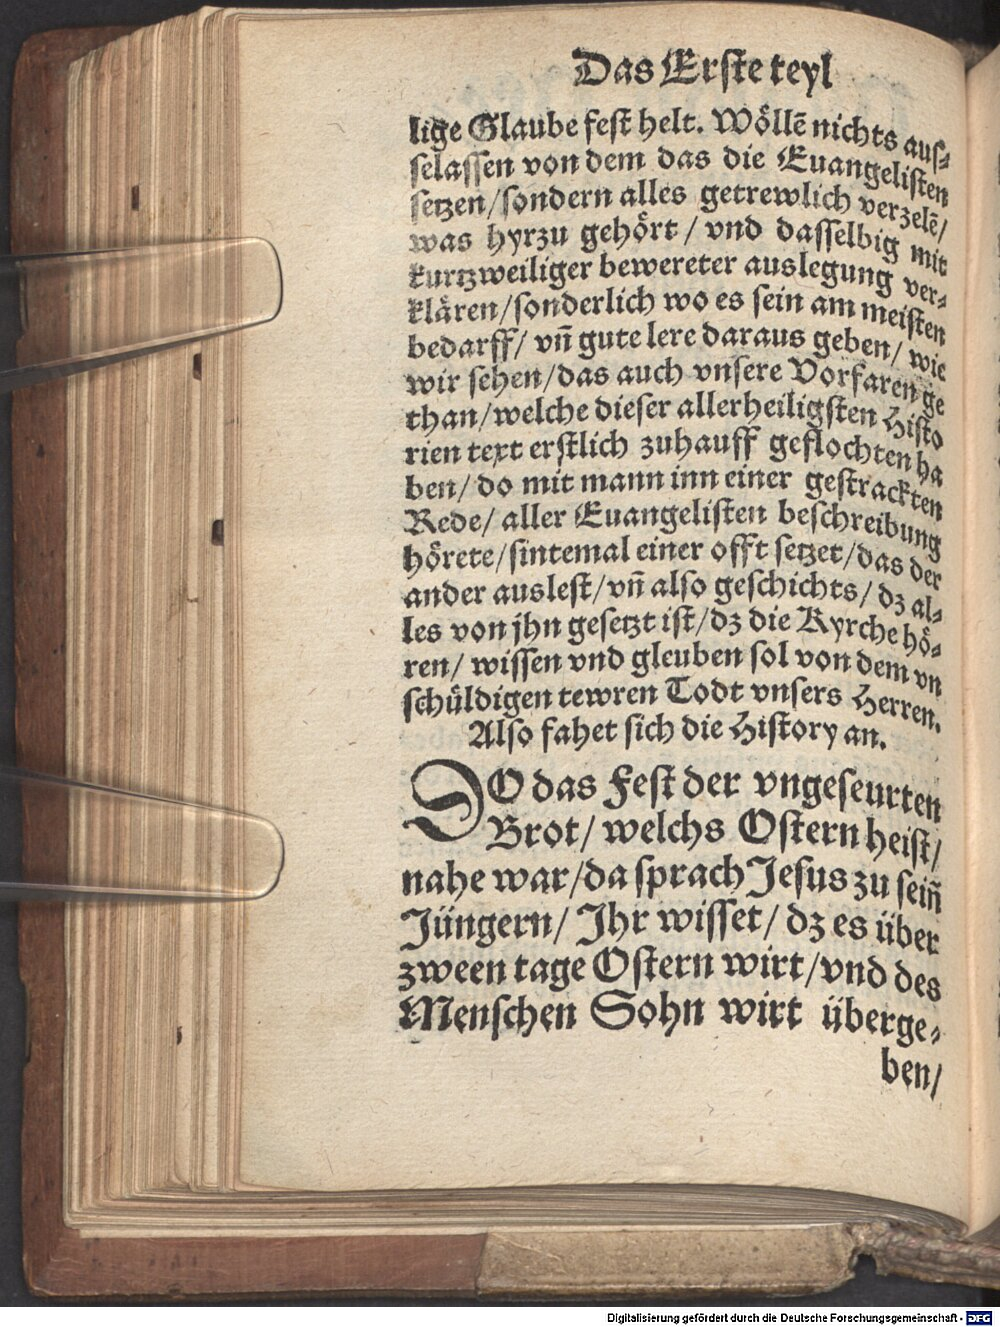 Das Erſte teyl
lige Glaube feſt helt. Wöllē nichts auſ⸗
ſelaſſen von dem das die Euangeliſten
ſetzen/ſondern alles getrewlich verzelē/
was hyrzu gehört / vnd daſſelbig mit
kurtzweiliger bewereter auslegung ver⸗
klären/ſonderlich wo es ſein am meiſten
bedarff/ vn̄ gute lere daraus geben/ wie
wir ſehen/das auch vnſere Vorfaren ge
than/welche dieſer allerheiligſten Hiſto
rien text erſtlich zuhauff geflochten ha
ben/ do mit mann inn einer geſtrackten
Rede/ aller Euangeliſten beſchreibung
hörete/ſintemal einer offt ſetzet/das der
ander ausleſt/vn̄ alſo geſchichts/ dz al⸗
les von jhn geſetzt iſt/dz die Kyrche hö⸗
ren/ wiſſen vnd gleuben ſol von dem vn
ſchüldigen tewren Todt vnſers Herren.
Alſo fahet ſich die Hiſtory an.
DO das Feſt der vngeſeurten
Brot/ welchs Oſtern heiſt/
nahe war/da ſprach Jeſus zu ſein̄
Jüngern/ Jhr wiſſet/ dz es über
zween tage Oſtern wirt/vnd des
Menſchen Sohn wirt überge⸗
ben/
Digitalisierung gefördert durch die Deutsche Forschungsgemeinschaft - DFG